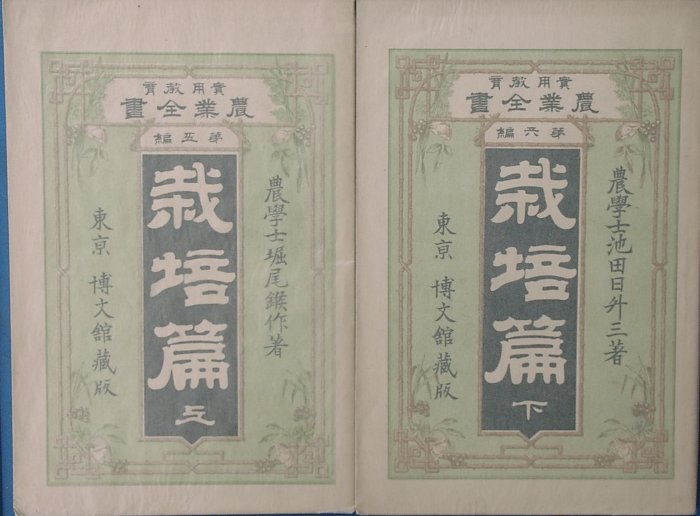 實用教育
農業全書
第五編
農學士堀尾 作著
栽培篇
上
東京 博文館藏版
實用教育
農業全書
第六編
農學士池田日升三著
栽培篇
下
東京 博文館藏版